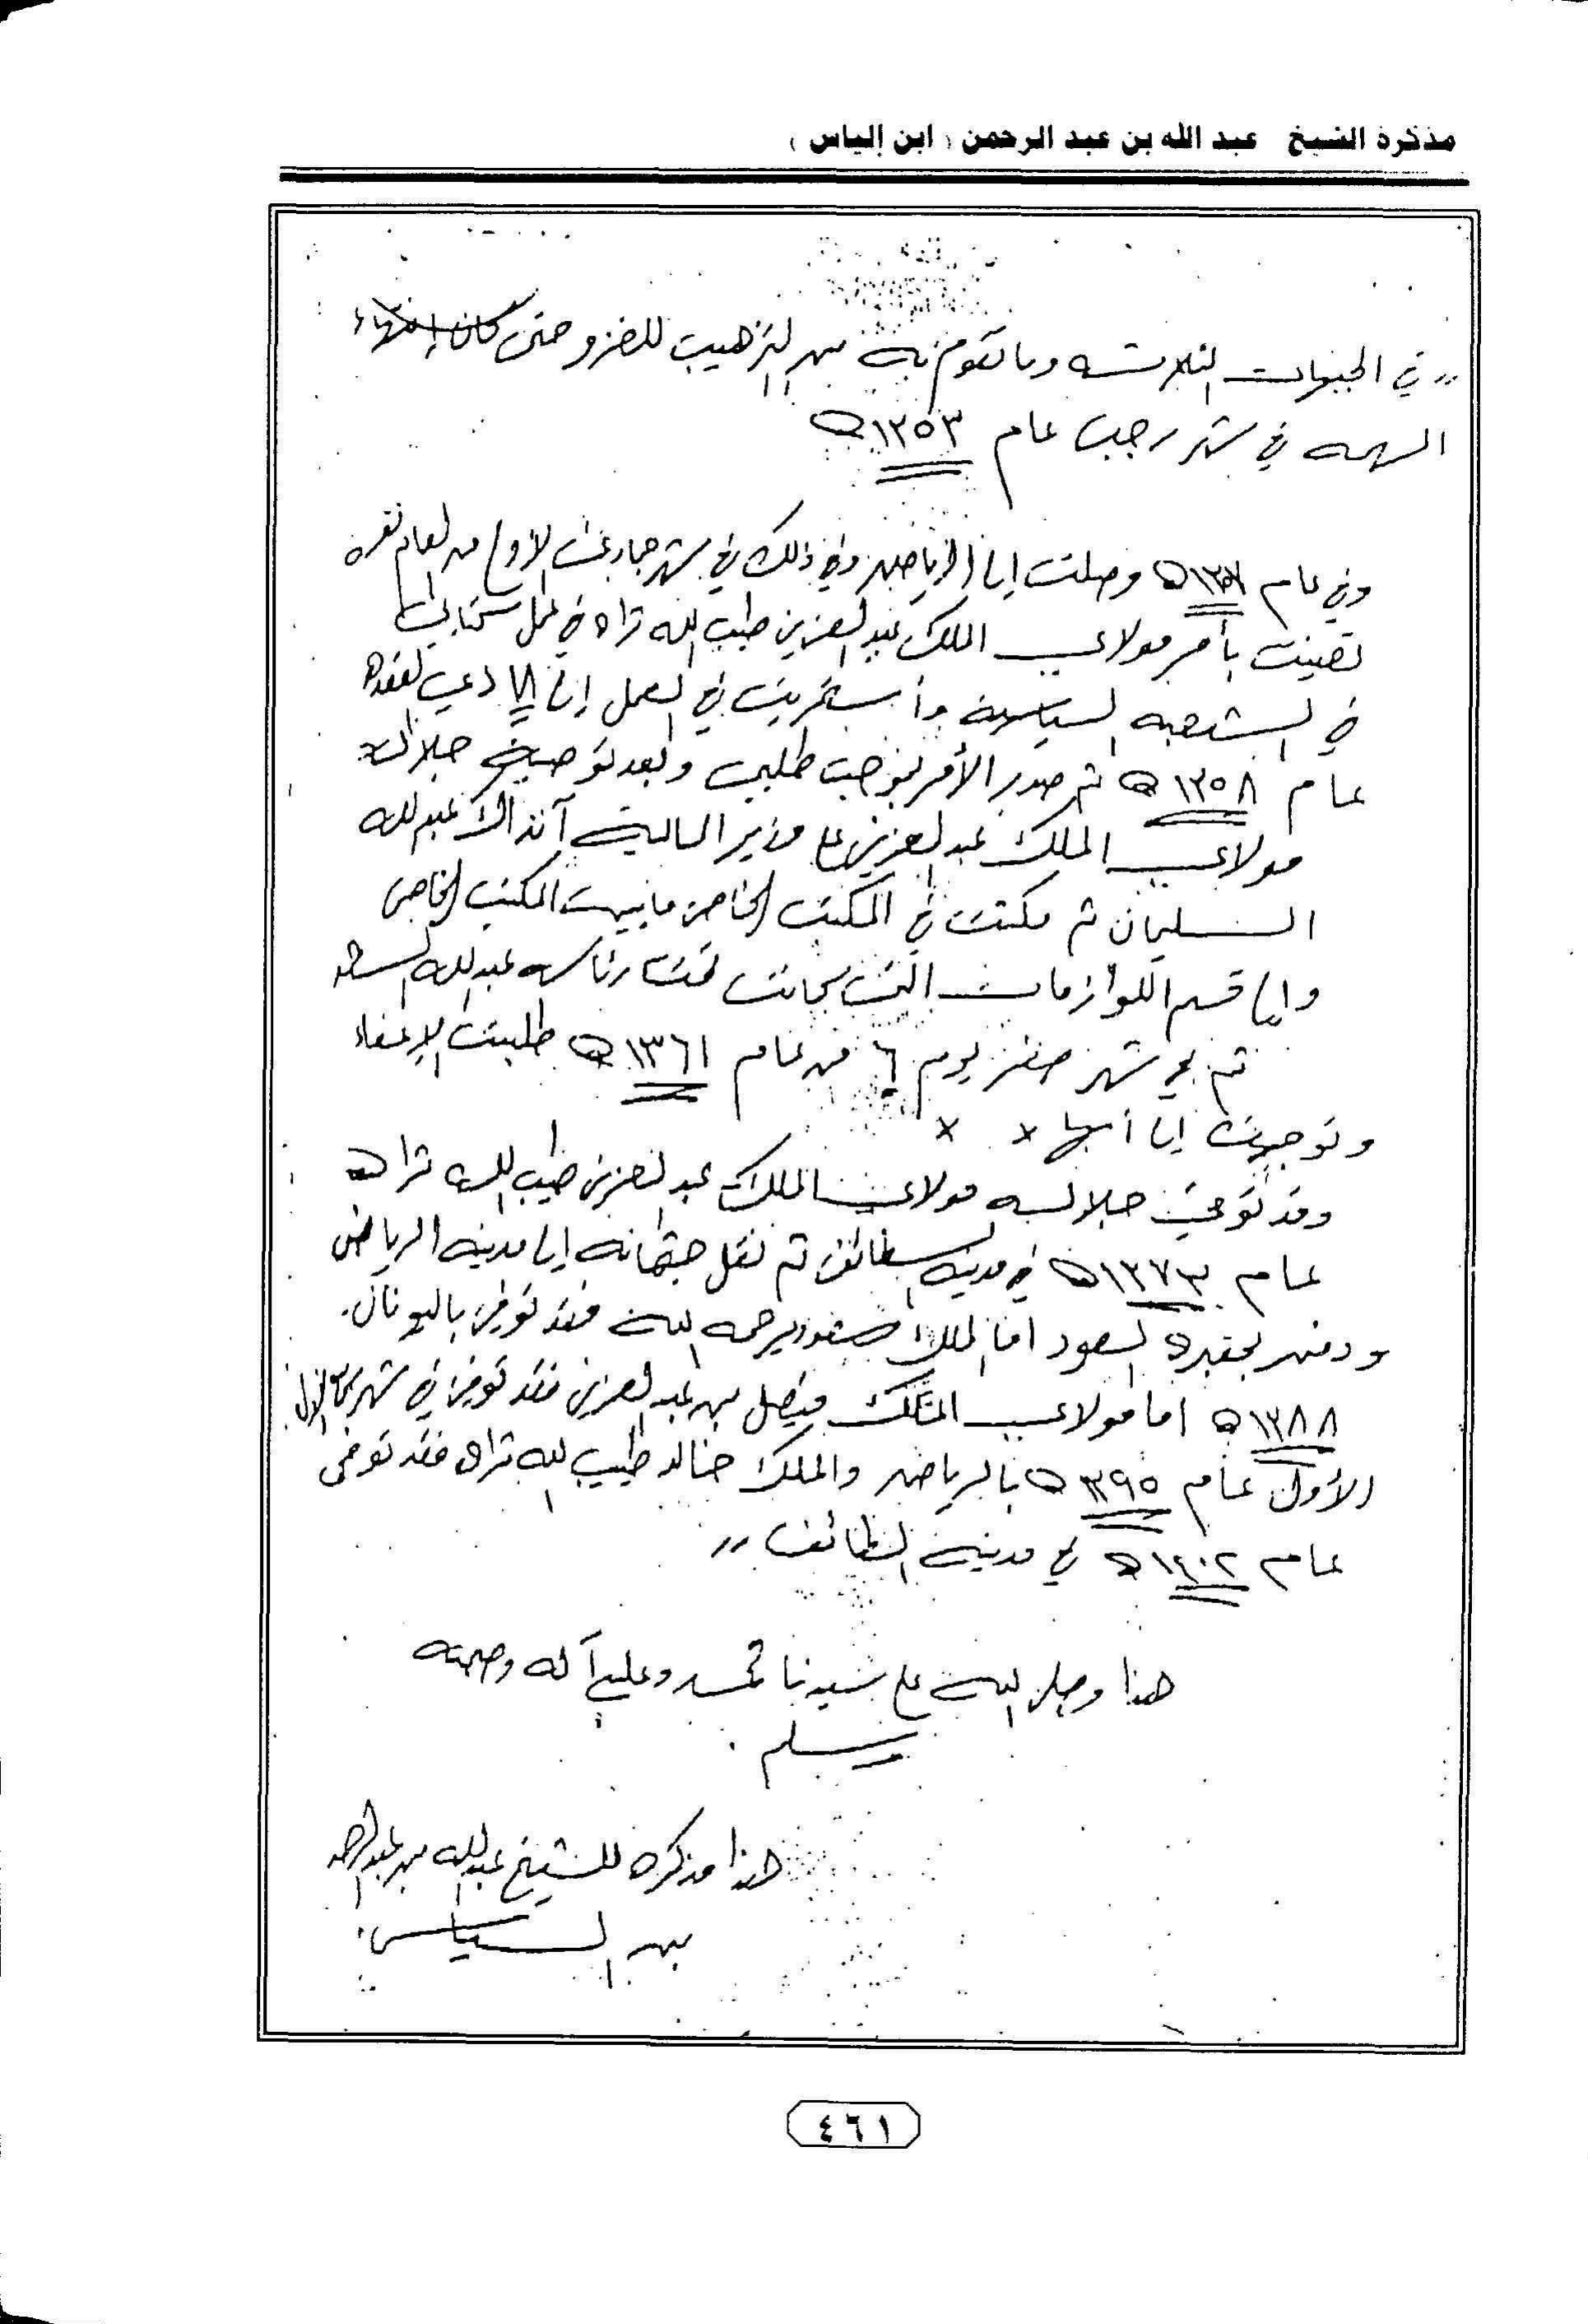 مذكرة الشيخ عبد الله بن عبد الرحمن (ابن إلياس)
〃 في الجبهات الثلاثه وما تقوم به من الترهيب للغزو حتى كان إنتهاء
المهمه في شهر رجب عام ١٣٥٣ه
وفي عام وصلت إلى الرياض وفي ذلك في شهر جمادى الأول من العام نفسه
تعينت بأمر مولاي الملك عبدالعزيز طيب الله ثراه في عمل كتابي
في الشعبه السياسية وأستمريت في العمل إلى ذي القعده
عام ١٣٥٨ه ثم صدر الأمر بموجب طلبي وبعد توصية جلالة
مولاي الملك عبدالعزيز على وزير المالية آنذاك عبدالله
السليمان ثم مكثت في المكتب الخاص مابين المكتب الخاص
وإلى قسم اللوازمات التي كانت تحت رئاسه عبدالله السعد
ثم في شهر صفر يوم ٦ من عام ١٣٦١ه طلبت الإعفاء
وتوجهت إلى أبها × ×
وقد توفي جلالة مولاي الملك عبدالعزيز طيب الله ثراه
عام ١٣٧٣ه في مدينة الطائف ثم نقل جثمانه إلى مدينه الرياض
ودفن بمقبرة السعود اما الملك سعود يرحمه الله فقد توفي باليونان.
١٣٨٨ه اما مولاي الملك فيصل بن عبدالعزيز فقد توفي في شهر ربيع الأول
الأول عام ١٣٩٥ه بالرياض والملك خالد طيب الله ثراه فقد توفى
عام ١٤٠٢ه في مدينة الطائف 〃
هذا وصلى الله على سيدنا محمد وعلى آله وصحبه
وسلم.
هذا مذكره للشيخ عبدالله بن عبدالرحمن
بن إلياس.
٤٦١